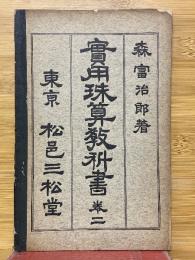 森富治郎著
實用珠算教科書 卷二
東京 松邑三松堂